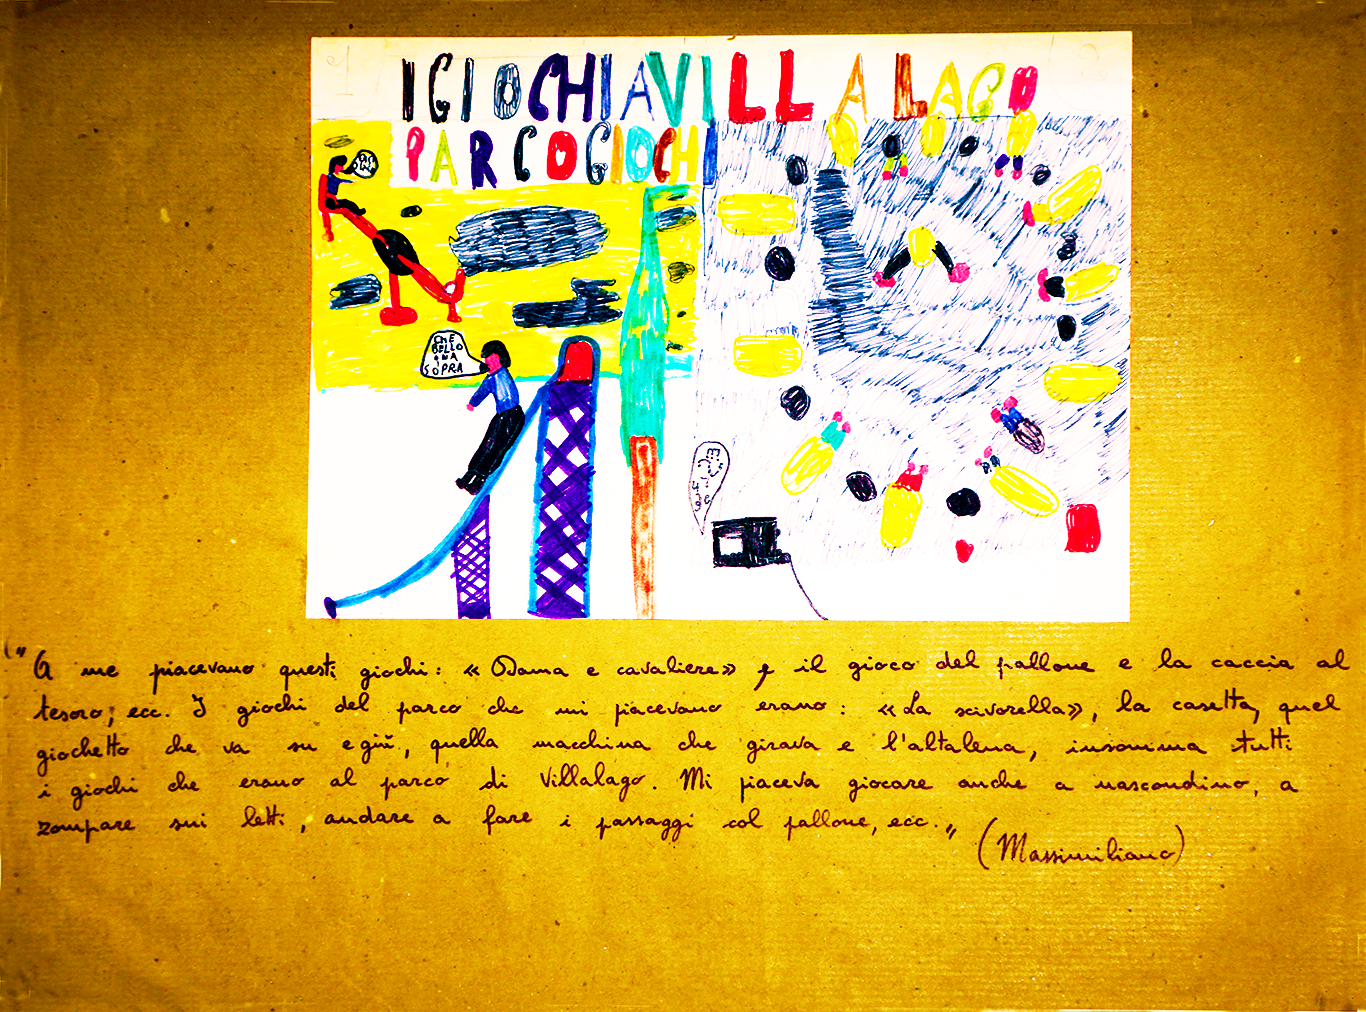 I GIOCHI A VILLALAGO
PARCO GIOCHI
CHE
BELLO
QUA
SOPRA
" A me piacevano questi giochi: « Dama e cavaliere» e il gioco del pallone e la caccia al
tesoro, ecc. I giochi del parco che mi piacevano erano: «La scivorella», la casetta, quel
giochetto che va su e giù, quella macchina che girava e l'altalena, insomma tutti
i giochi che erano al parco di Villalago. Mi piaceva giocare anche a nascondino, a
zompare sui letti, andare a fare i passaggi col pallone, ecc. "
(Massimiliano)